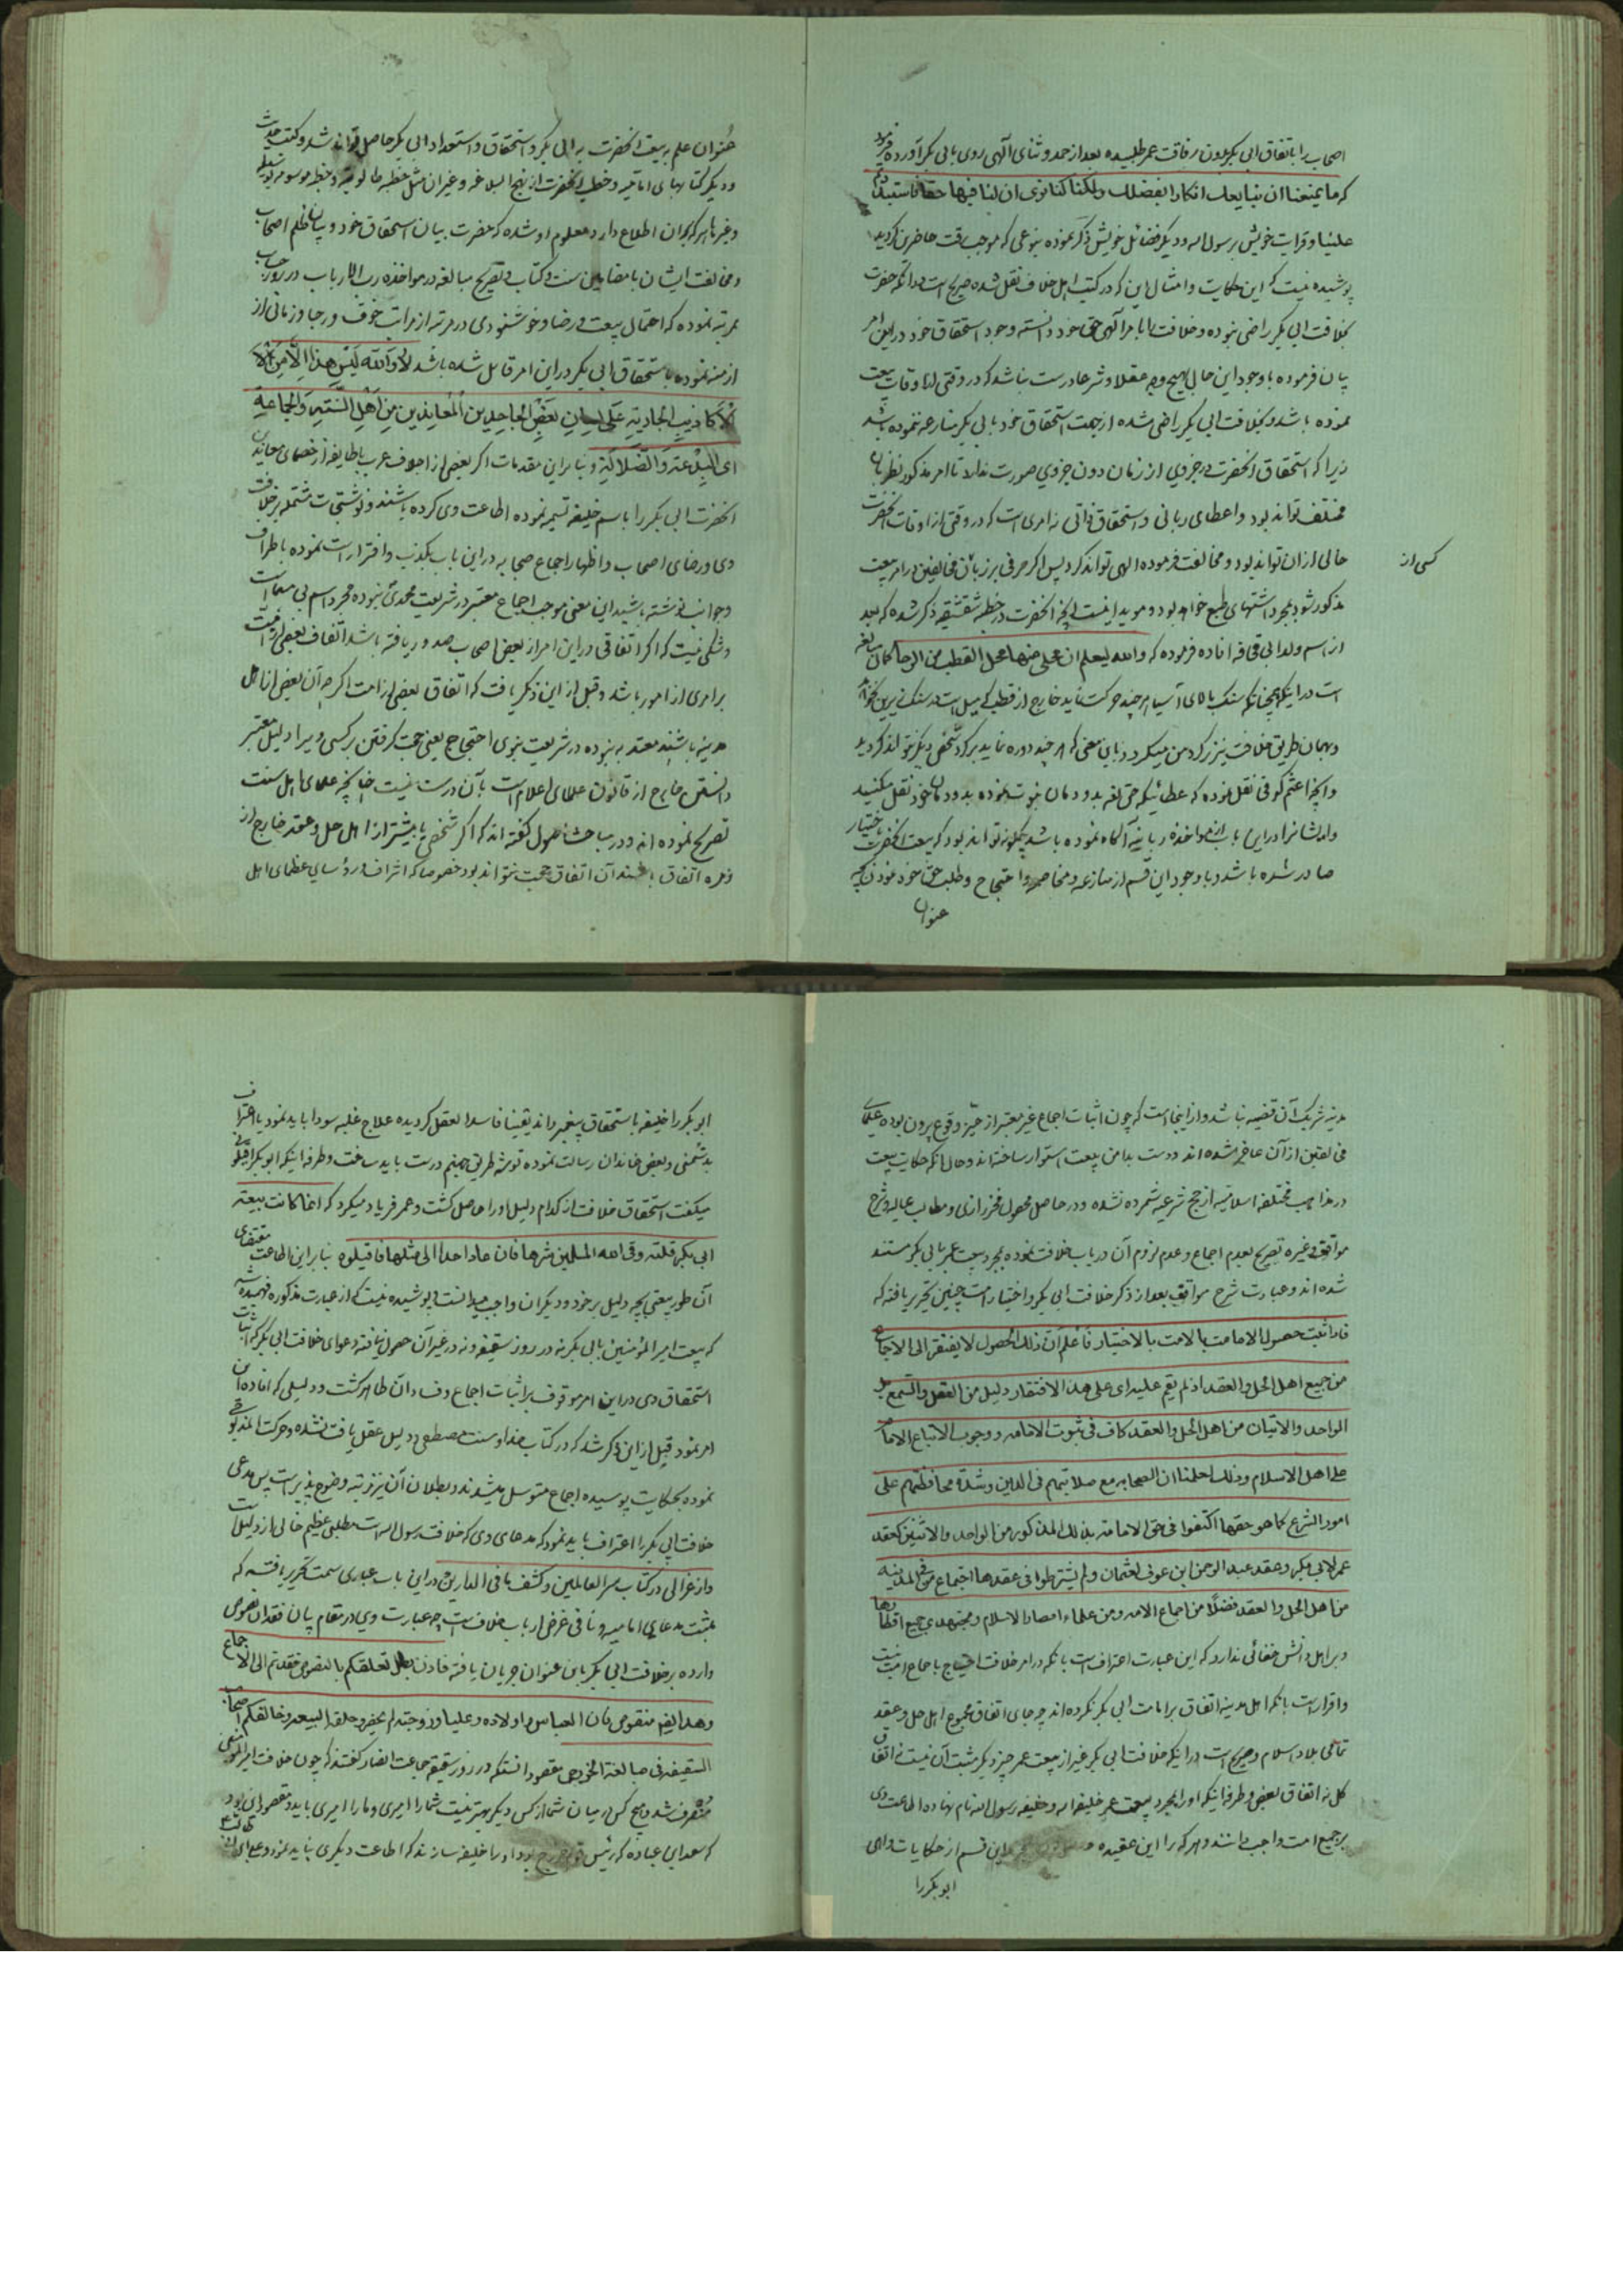 اصحاب را باتفاق ابی بکر بدون رفاقت عمر طلبیده بعد از حمد و ثنای الهی روی بابی بکر آورده فرمود
که ما یمنعنا ان نبایعک انکارا بفضلک ولکنا کنا نری ان لنا فیها حقا فاستبددتم
علینا و قرابت خویش برسول الله و دیگر فضائل خویش ذکر نموده بنوعی که موجب رقت حاضرین گردید
پوشیده نیست که این حکایت و امثال این که در کتب اهل خلاف نقل شده صریح است در آنکه حضرت
بخلافت ابی بکر راضی نبوده و خلافت را بامر الهی حق خود دانسته وجود استحقاق خود در این امر
بیان فرموده باوجود این حال بهیچ وجه عقلا و شرعا درست نباشد که در وقتی از اوقات بیعت
نموده باشد و بخلافت ابی بکر راضی شده از جهت استحقاق خود بابی بکر منازعه ننموده باشد
زیرا که استحقاق آنحضرت در جزوی از زمان دون جزوی صورت ندارد تا امر مذکور نظر بان
مختلف تواند بود و اعطای ربانی و استحقاق ذاتی نه امری است که در وقتی از اوقات آنحضرت
خالی از ان تواند بود و مخالفت فرموده الهی تواند کرد پس اگر حرفی بر زبان مخالفین در امر بیعت
کسی از
مذکور شود بمجرد اشتهای طبع خواهد بود و موید اینست آنچه از آنحضرت در خطبه شقشقیه ذکر شده که بعد
از اسم ولد ابی قحافه افاده فرموده که والله لیعلم ان محلی منها محل القطب من الرحا کمال مبالغه
است در اینکه همچنانکه سنگ بالای آسیا هر چند حرکت نماید خارج از قطب که میل است در سنگ زیرین نخواهد
و بهمان طریق خلافت نیز بر گرد من میگردد باین معنی که هر چند دوره نماید بر گرد شخصی دیگر نتواند گردید
و آنچه اعثم کوفی نقل نموده که
و ایشانرا در این باب از مواخذه ربانیه آگاه نموده باشد چگونه تواند بود که بیعت آنحضرت باختیار
صادر شده باشد و باوجود این قسم از منازعه و مخاصمه و احتجاج و طلب حق خود نمودن بچه
عنوان
عنوان علم به بیعت آنحضرت به ابی بکر و استحقاق و استعداد ابی بکر حاصل تواند شد و کتب حدیث
و دیگر کتابهای امامیه و خطب آنحضرت از نهج البلاغه و غیر ان مثل خطبه طالوتیه و خطبه موسومه بوسیله
و غیر ها هر که بر ان اطلاع دارد معلوم او شده که حضرت بیان استحقاق خود و بیان ظلم اصحاب
و مخالفت ایشان با مضامین سنت و کتاب و تصریح مبالغه در مواخذه رب الارباب در روز حساب
بمرتبه نموده که احتمال بیعت و رضا و خوشنودی در مرتبه از مراتب خوف و رجا و زمانی از
ازمنه نموده باستحقاق ابی بکر در این امر قایل شده باشد لا والله لیس هذا الا من
الاکاذیب الجاریة علی لسان بعض الجاحدین المعاندین من اهل السنة والجماعة
ای البدعة والضلالة و بنا بر این مقدمات اگر بعضی از اجلاف عرب یا طایفه از خصمای معاندین
آنحضرت ابی بکر را باسم خلیفه تسمیه نموده اطاعت وی کرده باشند و نوشتجات مشتمله بر خلافت
وی و رضای اصحاب و اظهار اجماع صحابه در این باب بکذب و افترا راست نموده باطراف
و جوانب نوشته باشند این معنی موجب اجماع معتبر در شریعت محمدی نبوده مجرد اسم بی مسمی است
و شکی نیست که اگر اتفاقی در این امر از بعض اصحاب صدور یافته باشد اتفاق بعضی از امت
بر امری از امور باشد و قبل از این ذکر یافت که اتفاق بعضی از امت اگر چه آن بعض از اهل
مدینه باشند معتد به نبوده در شریعت نبوی احتجاج یعنی حجت گرفتن بر کسی و یرا دلیل معتبر
دانستن خارج از قانون علمای اعلام است بآن درست نیست چنانچه علمای اهل سنت
تصریح نموده اند و در مباحث اصول گفته اند که اگر شخصی یا بیشتر از اهل حل و عقد خارج از
زمره اتفاق باشند آن اتفاق حجت نتواند بود خصوصا که اشراف و رؤسای عظمای اهل
مدینه شریک آن قضیه نباشد و از اینجا است که چون اثبات اجماع غیر معتبر از حیز وقوع بیرون بوده علمای
مخالفین از آن عاجز شده اند و دست بدامن بیعت استوار ساخته اند و حال آنکه حکایت بیعت
در مذاهب مختلفه اسلامیه از حجج شرعیه شمرده نشده و در حاصل محصول فخر رازی و مطالب عالیه و شرح
مواقف و غیره تصریح بعدم اجماع و عدم لزوم آن در باب خلافت نموده بمجرد بیعت عمر بابی بکر مستند
شده اند و عبارت شرح مواقف بعد از ذکر خلافت ابی بکر و اختیار امت چنین تحریر یافته که
فاذا ثبت حصول الامامت بالامت بالاختیار فاعلم ان ذلک الحصول لا یفتقر الی الاجماع
من جمیع اهل الحل والعقد اذ لم یقم علیه ای علی هذا الافتقار دلیل من العقل والسمع بل
الواحد والاثنان من اهل الحل والعقد کاف فی ثبوت الامامه و وجوب الاتباع الامام
علی اهل الاسلام وذلک لعلمنا ان الصحابه مع صلابتهم فی الدین وشدة محافظتهم علی
امور الشرع کما هو حقها اکتفوا فی عقد الامامة بذلک المذکور من الواحد والاثنین کعقد
عمر لابی بکر وعقد عبد الرحمن ابن عوف لعثمان ولم یشترطوا فی عقدها اجتماع من فی المدینه
من اهل الحل والعقد فضلا من اجماع الامه ومن علماء امصار الاسلام ومجتهدی جمیع اقطارها
و بر اهل دانش خفائی ندارد که این عبارت اعتراف است بانکه در امر خلافت احتیاج باجماع امت نیست
و اقرار است بانکه اهل مدینه اتفاق بر امامت ابی بکر نکرده اند چه جای اتفاق مجموع اهل حل و عقد
تمامی بلاد اسلام و صریح است در اینکه خلافت ابی بکر غیر از بیعت عمر چیز دیگر مثبت آن نیست نه اتفاق
کل نه اتفاق بعض و طرفه اینکه او را بمجرد بیعت عمر خلیفة الله و خلیفه رسول الله نام نهاده اطاعت وی
بر جمیع امت واجب دانند و هر که را این عقیده این قسم از حکایات واهی
ابوبکر را
ابوبکر را خلیفه باستحقاق پیغمبر داند یقینا فاسد العقل گردیده علاج غلبه سودا باید نمود یا اعتراف
بدشمنی و بعض خاندان رسالت نموده توشه طریق جهنم درست باید ساخت و طرفه اینکه ابوبکر اقیلونی
میگفت استحقاق خلافت از کدام دلیل او را حاصل گشت و عمر فریاد میکرد که انما کانت بیعة
ابی بکر فلتة وقی الله المسلمین شرها فان عاد احدا الی مثلها فاقتلوه بنا بر این اطاعت مقتضای
آن طور بیعتی بچه دلیل بر خود و دیگران واجب میدانست و پوشیده نیست که از عبارت مذکوره فهمیده شد
که بیعت امیر المؤمنین بابی بکر نه در روز سقیفه و نه در غیر آن حصول نیافته دعوای خلافت ابی بکر که اثبات
استحقاق وی در این امر موقوف بر اثبات اجماع و فساد آن ظاهر گشت و دلیلی که افاده این
امر نمود قبل از این ذکر شد که در کتاب خدا و سنت مصطفی و دلیل عقل یافت نشده و حرکت المذبوحی
نموده بحکایت پوسیده اجماع متوسل میشدند و بطلان آن نیز زینه وضوح پذیر است پس مدعی
خلافت ابی بکر را اعتراف باید نمود که مدعای وی که خلافت رسول الله است مطلبی عظیم خالی از دلیل است
و از غزالی در کتاب سر العالمین و کشف ما فی الدارین در این باب عبارتی سمت تحریر یافته که
مثبت مدعای امامیه و نافی غرض ارباب خلاف است چه عبارت وی در مقام بیان فقدان نصوص
وارده بر خلافت ابی بکر باین عنوان جریان یافته فاذن بطل تعلقکم بالنصوص فعدتم الی الاجماع
وهذا ایضا منقوص فان العباس و اولاده و علیا و زوجته لم یحضروا حلقة البیعه وخالفکم اصحاب
السقیفه فی مبالغة الخزرجی مقصود آنستکه در روز سقیفه جماعت انصار گفتند که چون خلافت امیر المؤمنین
منصرف شد و هیچ کس در میان شما از کس دیگر بهتر نیست شما را امیری و ما را امیری باید و مقصود این بود
که سعد ابن عباده که رئیس خزرج بود او را خلیفه سازند که اطاعت دیگری نباید نمود